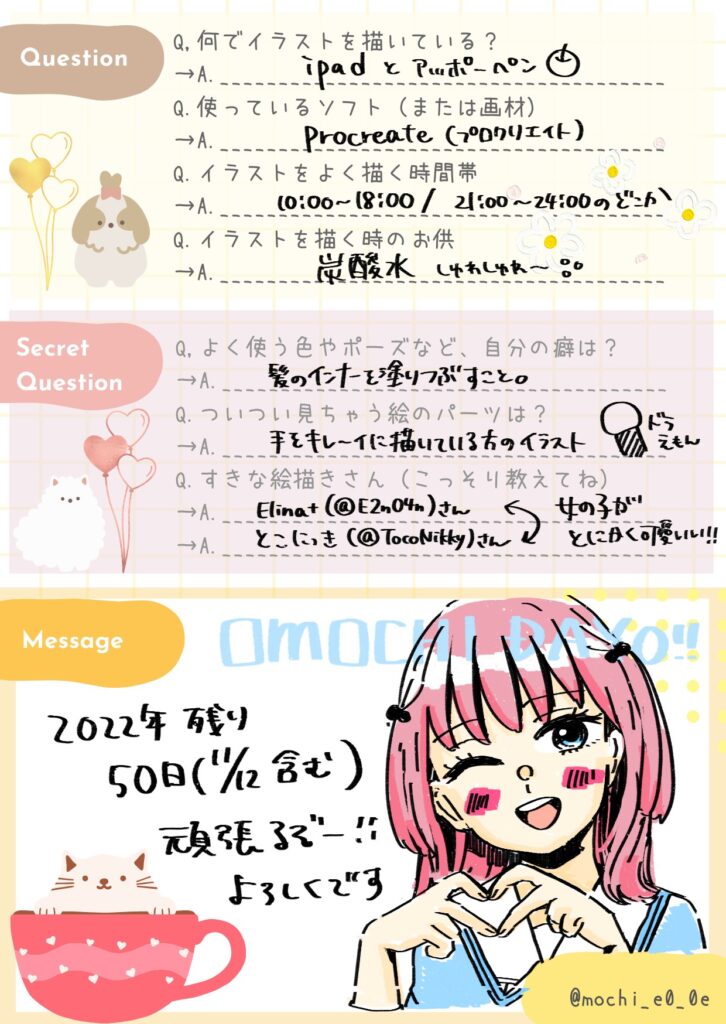 Question
Q,何でイラストを描いている？
→A. ipad と アッポーペン
Q.使っているソフト（または画材）
→A. Procreate（プロクリエイト）
Q.イラストをよく描く時間帯
→A. 10:00〜18:00 / 21:00〜24:00のどこか
Q.イラストを描く時のお供
→A. 炭酸水 しゅわしゅわ〜
Secret
Question
Q,よく使う色やポーズなど、自分の癖は？
→A. 髪のインナーを塗りつぶすこと。
Q.ついつい見ちゃう絵のパーツは？
→A. 手をキレーイに描いている方のイラスト
ドラ
えもん
Q.すきな絵描きさん（こっそり教えてね）
→A. Elina+（@E2n04n）さん
→A. とこにっき（@TocoNikky）さん
女の子が
とにかく可愛いい!!
Message
OMOCHI DAYO!!
2022年 残り
50日（11/12 含む）
頑張るぞー!!
よろしくです
@mochi_e0_0e